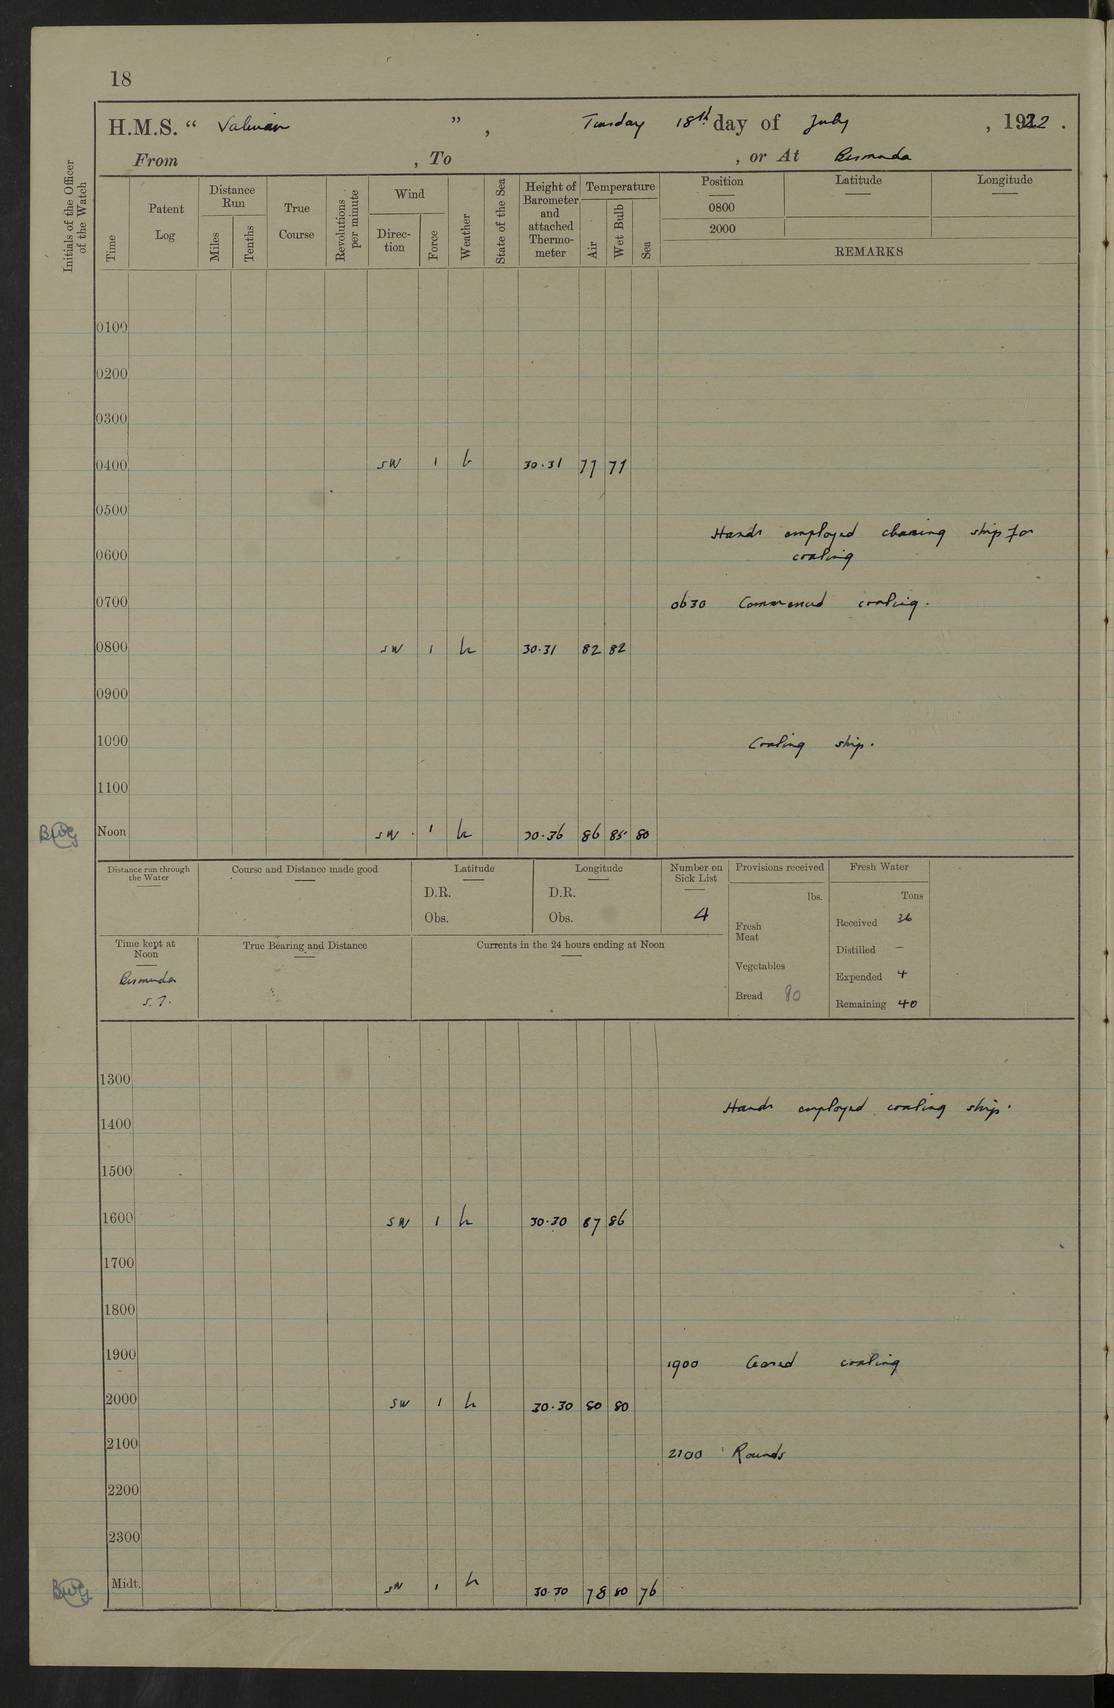 18
H.M.S. “ Valerian ” , Tuesday 18th day of July , 1922 .
From , To , or At Bermuda
Initials of the Officer of the Watch
Time
Patent Log
Distance Run
Miles
Tenths
True Course
Revolutions per minute
Wind
Direc-tion
Force
Weather
State of the Sea
Height of Barometer and attached Thermo-meter
Temperature
Air
Wet Bulb
Sea
Position Latitude Longitude
0800
2000
REMARKS
0100
0200
0300
0400 SW 1 b 30.31 77 77
0500
Hands employed cleaning ship for
0600 coaling
0700 0630 Commenced coaling.
0800 SW 1 b 30.31 82 82
0900
1000 Coaling ship.
1100
Noon SW 1 b 30.36 86 85 80
Distance run through the Water
Course and Distance made good
Latitude
D.R.
Obs.
Longitude
D.R.
Obs.
Number on Sick List
4
Provisions received
lbs.
Fresh Meat
Vegetables
Bread 80
Fresh Water
Tons
Received 36
Distilled –
Expended 4
Remaining 40
Time kept at Noon
Bermuda
S.T.
True Bearing and Distance
Currents in the 24 hours ending at Noon
1300
Hands employed coaling ship.
1400
1500
1600 SW 1 b 30.30 87 86
1700
1800
1900 1900 Ceased coaling
2000 SW 1 b 30.30 80 80
2100 2100 Rounds
2200
2300
Midt. SW 1 b 30.30 78 80 76